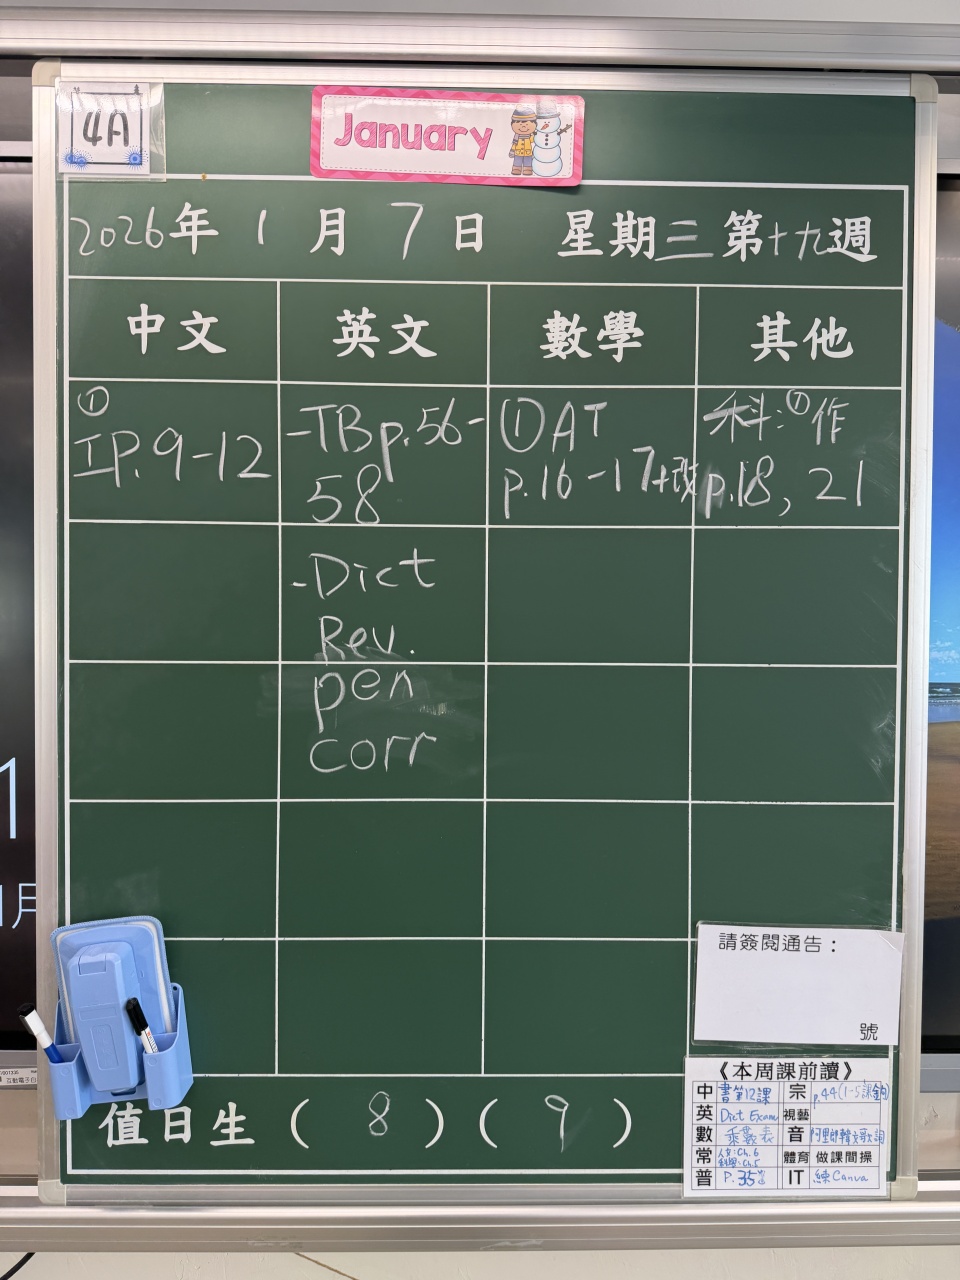 4A
January
2026年 1 月 7 日 星期三 第十九週
中文 英文 數學 其他
①
工P.9-12
-TB p.56-
58
-Dict
Rev.
pen
corr
①AT
p.16-17+改
科:①作
p.18, 21
請簽閱通告：
號
《本周課前讀》
中 書第12課 宗 p.44(1-5課銅)
英 Dict Exam 視藝
數 乘數表 音 阿里郎韓文歌詞
常 人文:Ch.6 科學:Ch.5 體育 做課間操
普 P.35 IT 練Canva
值日生 ( 8 ) ( 9 )
1
1月
互動電子白